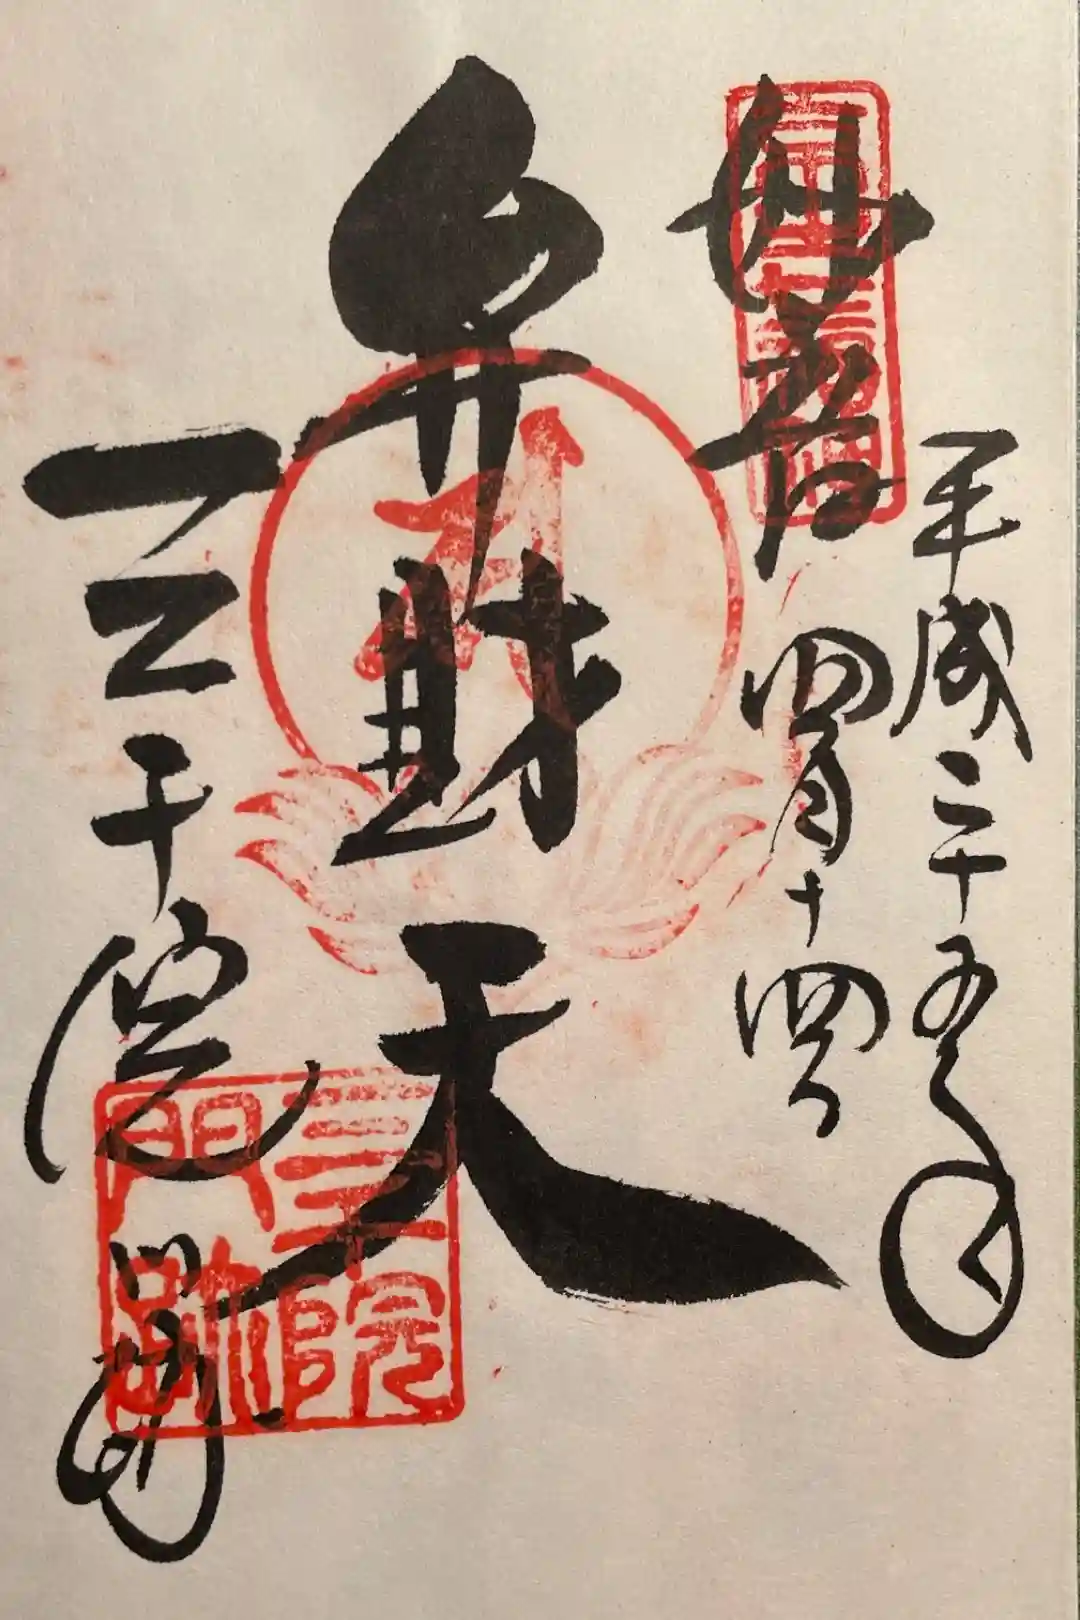 平成二十五年
妙音
四月十四日
弁財天
三千院
門跡
三千院
門跡